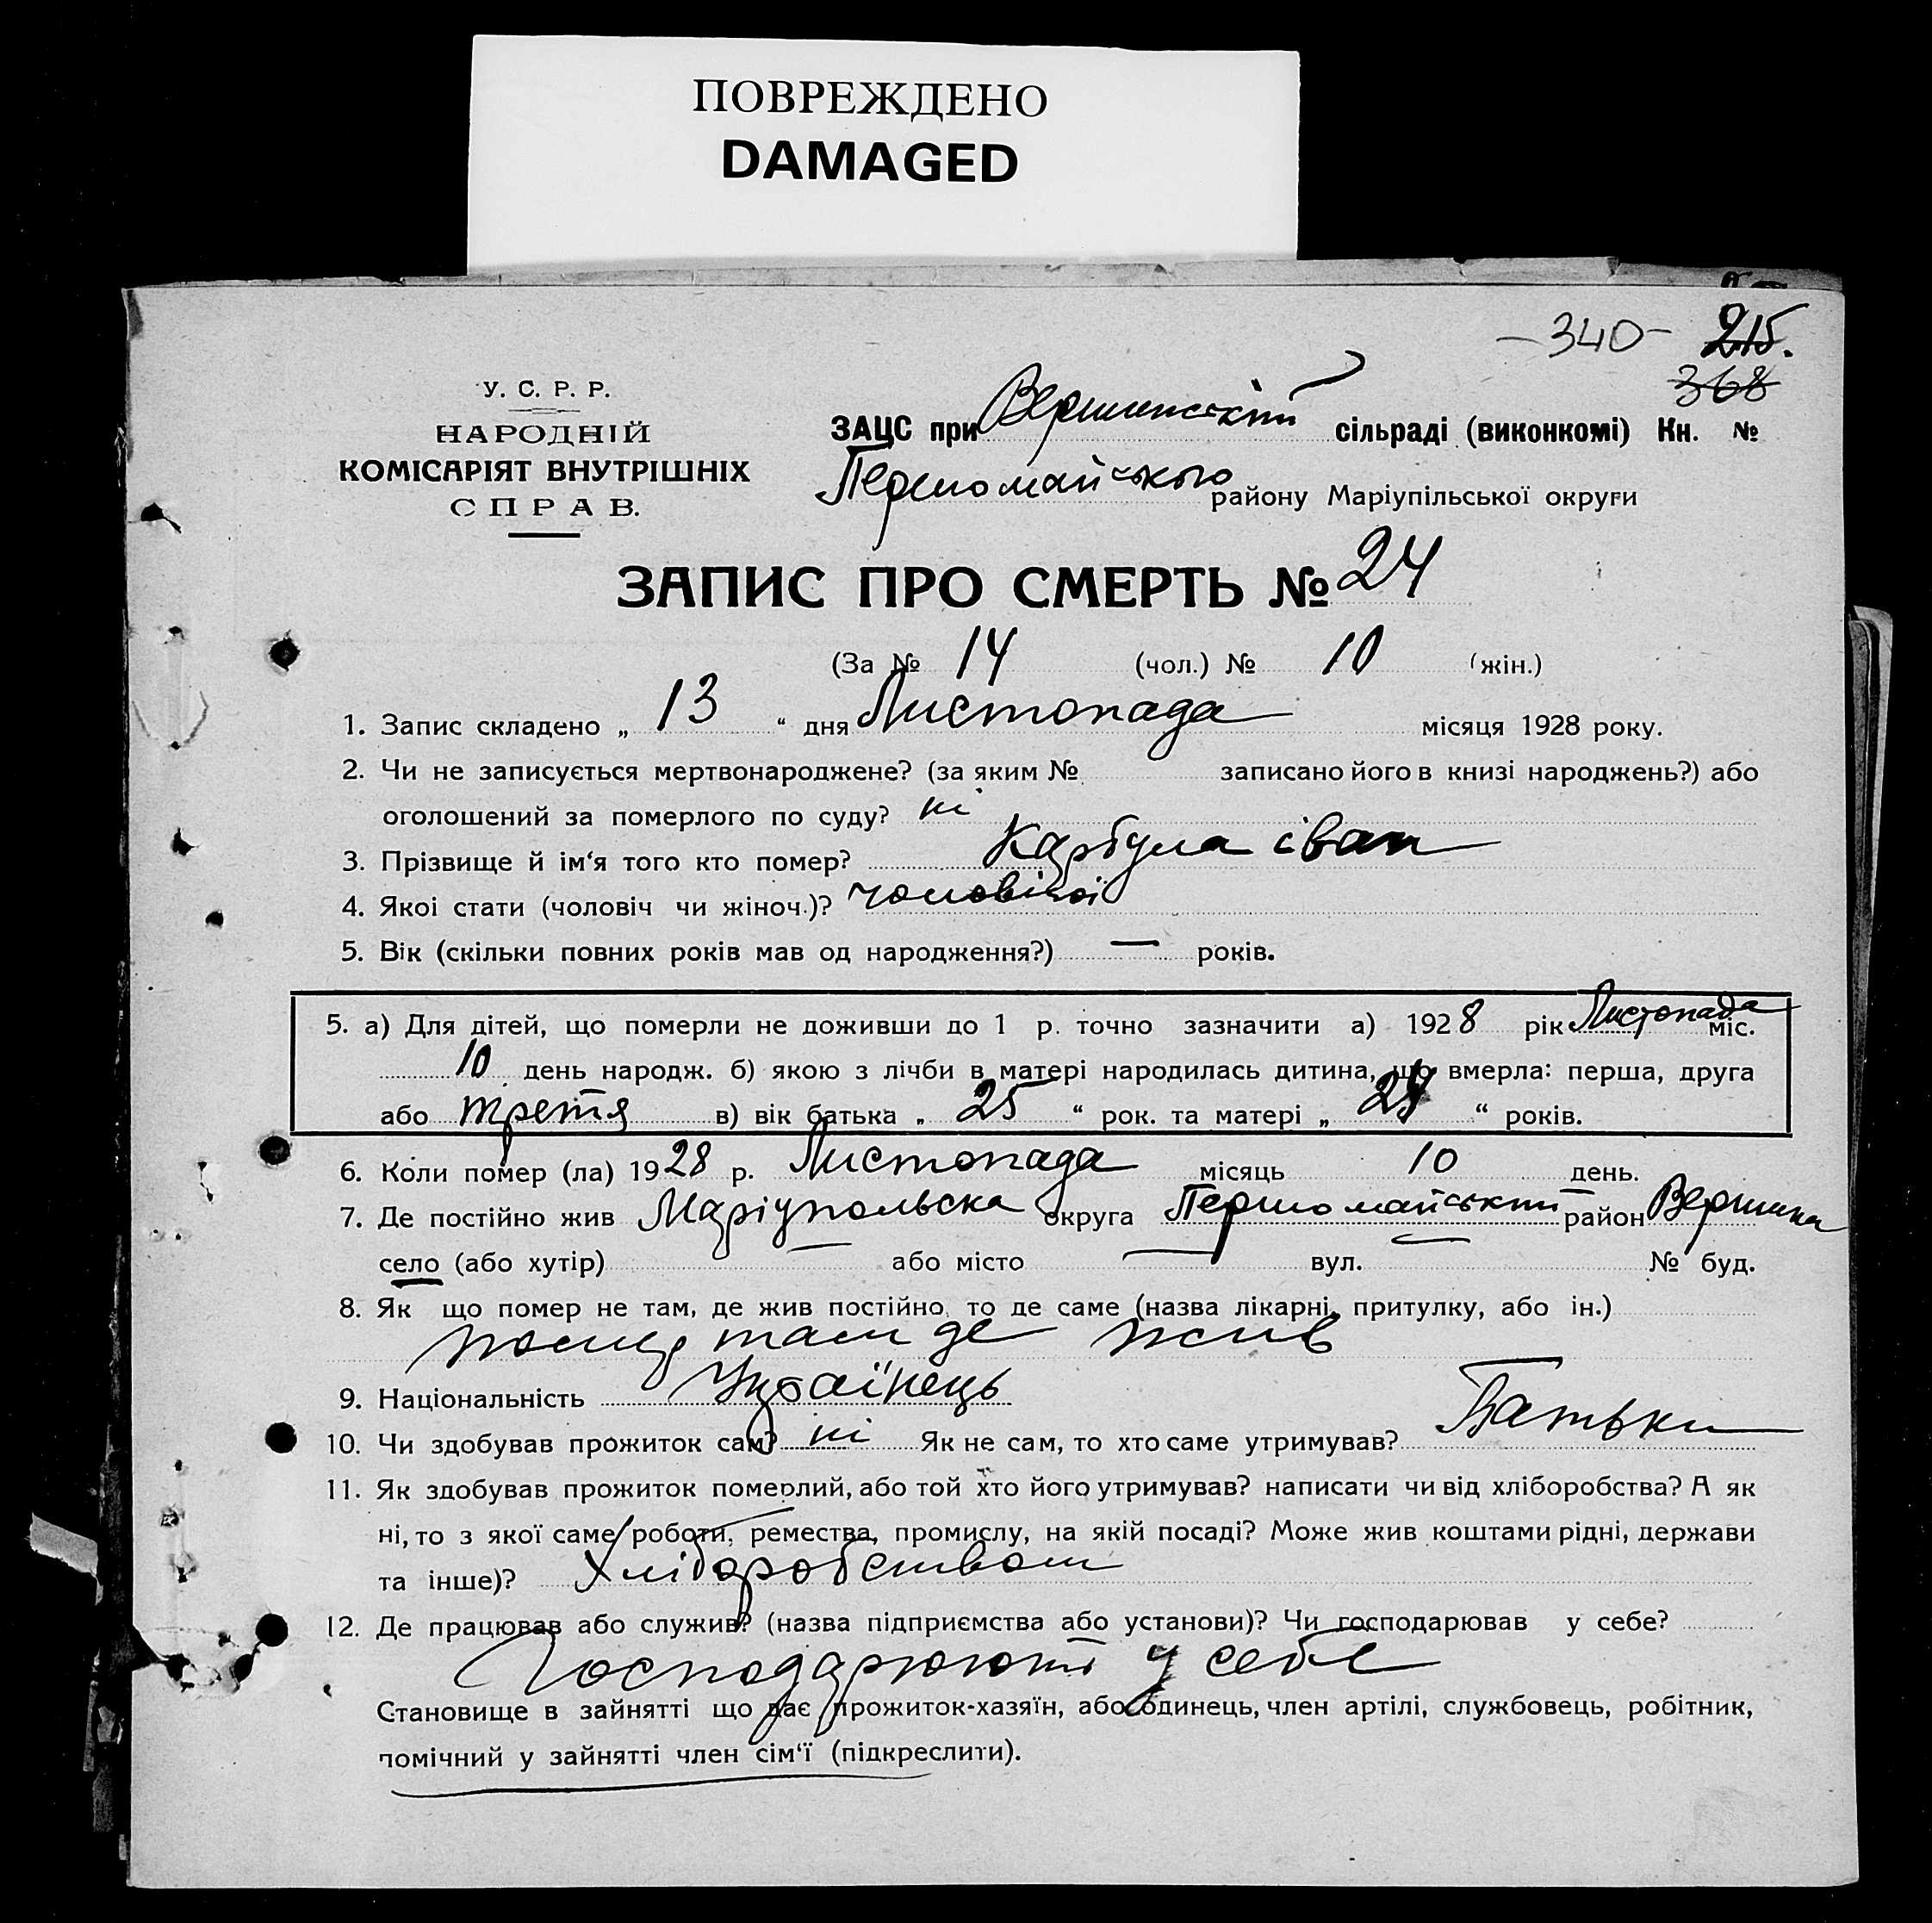 ПОВРЕЖДЕНО
DAMAGED
–340– 215.
368
У. С. Р. Р.
НАРОДНІЙ
КОМІСАРІЯТ ВНУТРІШНІХ
СПРАВ.
ЗАЦС при Вершинській сільраді (виконкомі) Кн. №
Першомайського району Маріупільської округи
ЗАПИС ПРО СМЕРТЬ № 24
(За № 14 (чол.) № 10 (жін.)
1. Запис складено „ 13 “ дня Листопада місяця 1928 року.
2. Чи не записується мертвонароджене? (за яким № записано його в книзі народжень?) або
оголошений за померлого по суду? ні
3. Прізвище й ім‘я того кто помер? Карбула іван
4. Якоі стати (чоловіч чи жіноч.)? чоловічої
5. Вік (скільки повних років мав од народження?) — років.
5. а) Для дітей, що померли не доживши до 1 р. точно зазначити а) 1928 рік Листопада міс.
10 день народж. б) якою з лічби в матері народилась дитина, що вмерла: перша, друга
або третя в) вік батька „ 25 “ рок. та матері „ 24 “ років.
6. Коли помер (ла) 1928 р. Листопада місяць 10 день.
7. Де постійно жив Маріупольска округа Першомайський район Вершина
село (або хутір) — або місто — вул. — № буд.
8. Як що помер не там, де жив постійно, то де саме (назва лікарні, притулку, або ін.)
помер там де жив
9. Національність Українець
10. Чи здобував прожиток сам? ні Як не сам, то хто саме утримував? Батьки
11. Як здобував прожиток померлий, або той хто його утримував? написати чи від хліборобства? А як
ні, то з якої саме роботи, ремества, промислу, на якій посаді? Може жив коштами рідні, держави
та інше)? Хліборобством
12. Де працював або служив? (назва підприємства або установи)? Чи господарював у себе?
Господарюють у себе
Становище в зайнятті що дає прожиток-хазяїн, або одинець, член артілі, службовець, робітник,
помічний у зайнятті член сім‘ї (підкреслити).